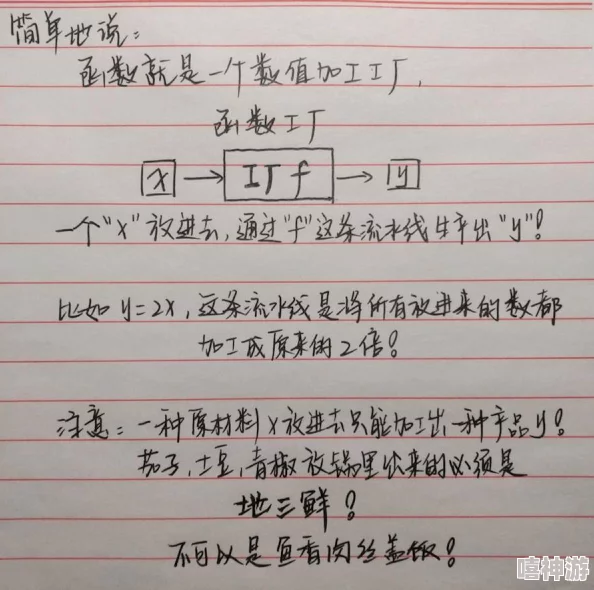 简单地说：
函数就是一个数值加工工厂,
函数工厂
x → 工厂 f → y
一个“x”放进去,通过“f”这条流水线生产出“y”!
比如 y=2x,这条流水线是将所有放进来的数都
加工成原来的2倍!
注意：一种原材料x放进去只能加工出一种产品y!
茄子,土豆,青椒放锅里出来的必须是
地三鲜!
不可以是鱼香肉丝盖饭!
嘻神游